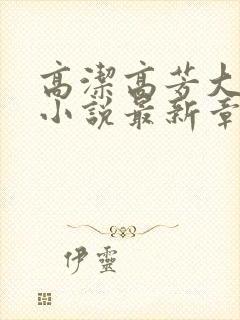 高潔高芳大
小說最新章
伊靈